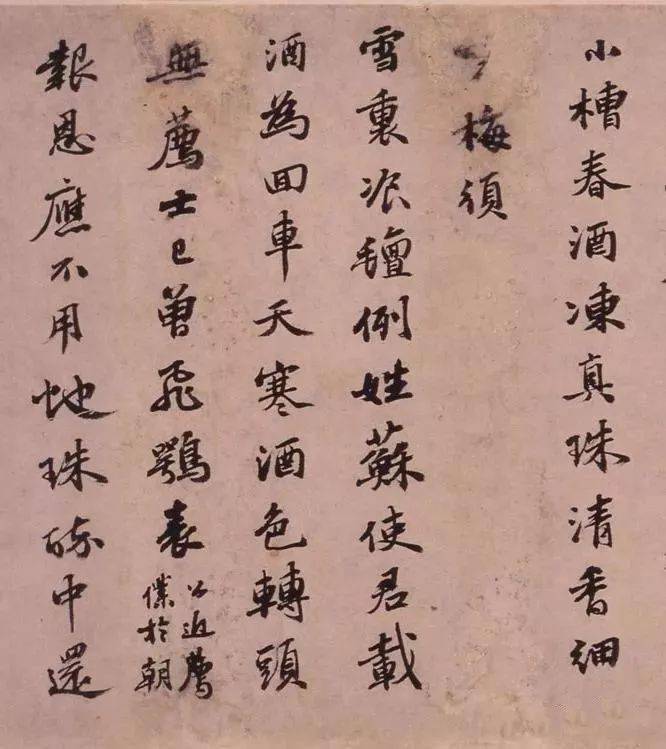 小槽春酒凍真珠清香細
梅須
雪裏飡氊例姓蘇使君載
酒為回車天寒酒色轉頭
無薦士已曾飛鶚表
公近薦
僕於朝
報恩應不用虵珠醉中還